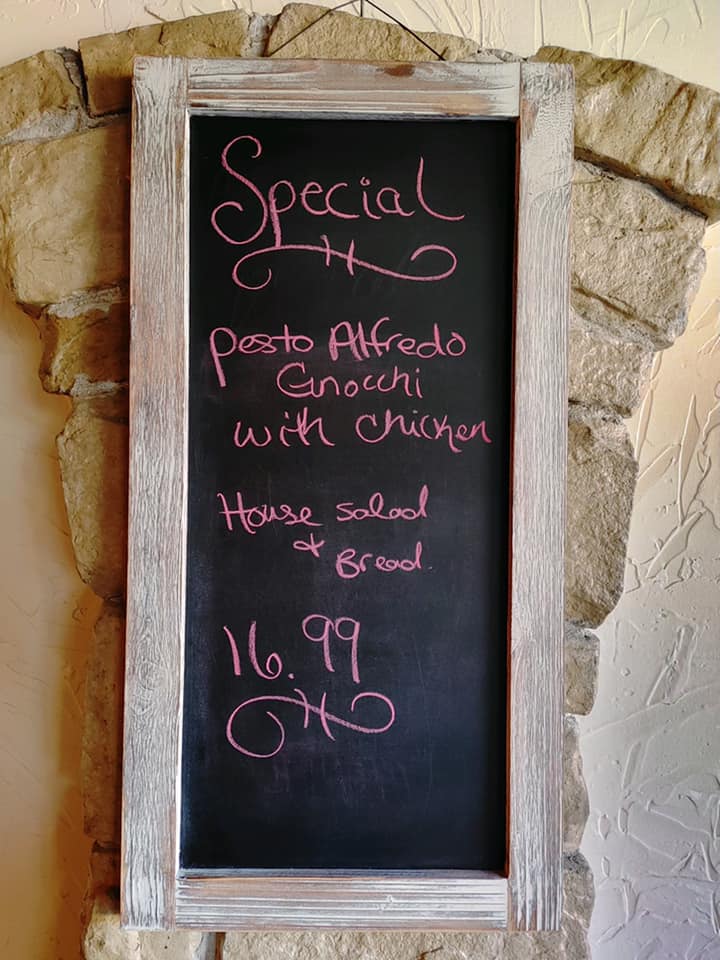 Special
Pesto Alfredo
Gnocchi
with chicken
House salad
& Bread.
16.99